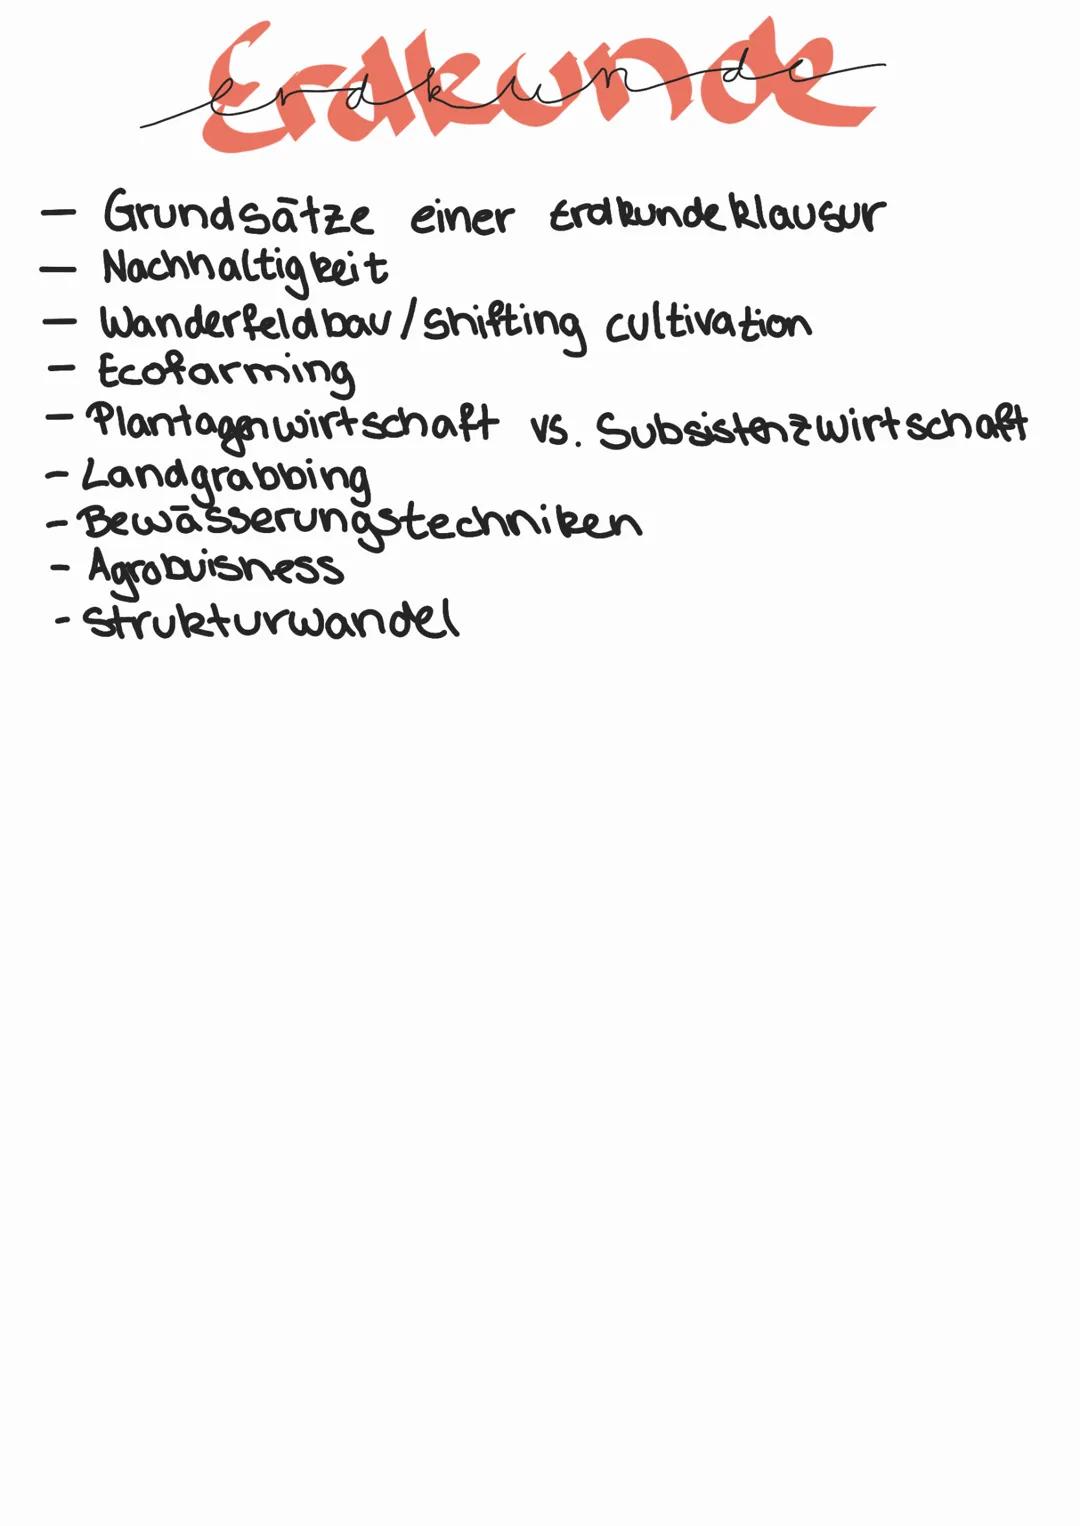 Erdkunde
erdkunde
- Grundsätze einer Erdkundeklausur
- Nachhaltigkeit
- Wanderfeldbau/shifting cultivation
- Ecofarming
- Plantagenwirtschaft vs. Subsistenzwirtschaft
- Landgrabbing
- Bewässerungstechniken
- Agrobuisness
- Strukturwandel